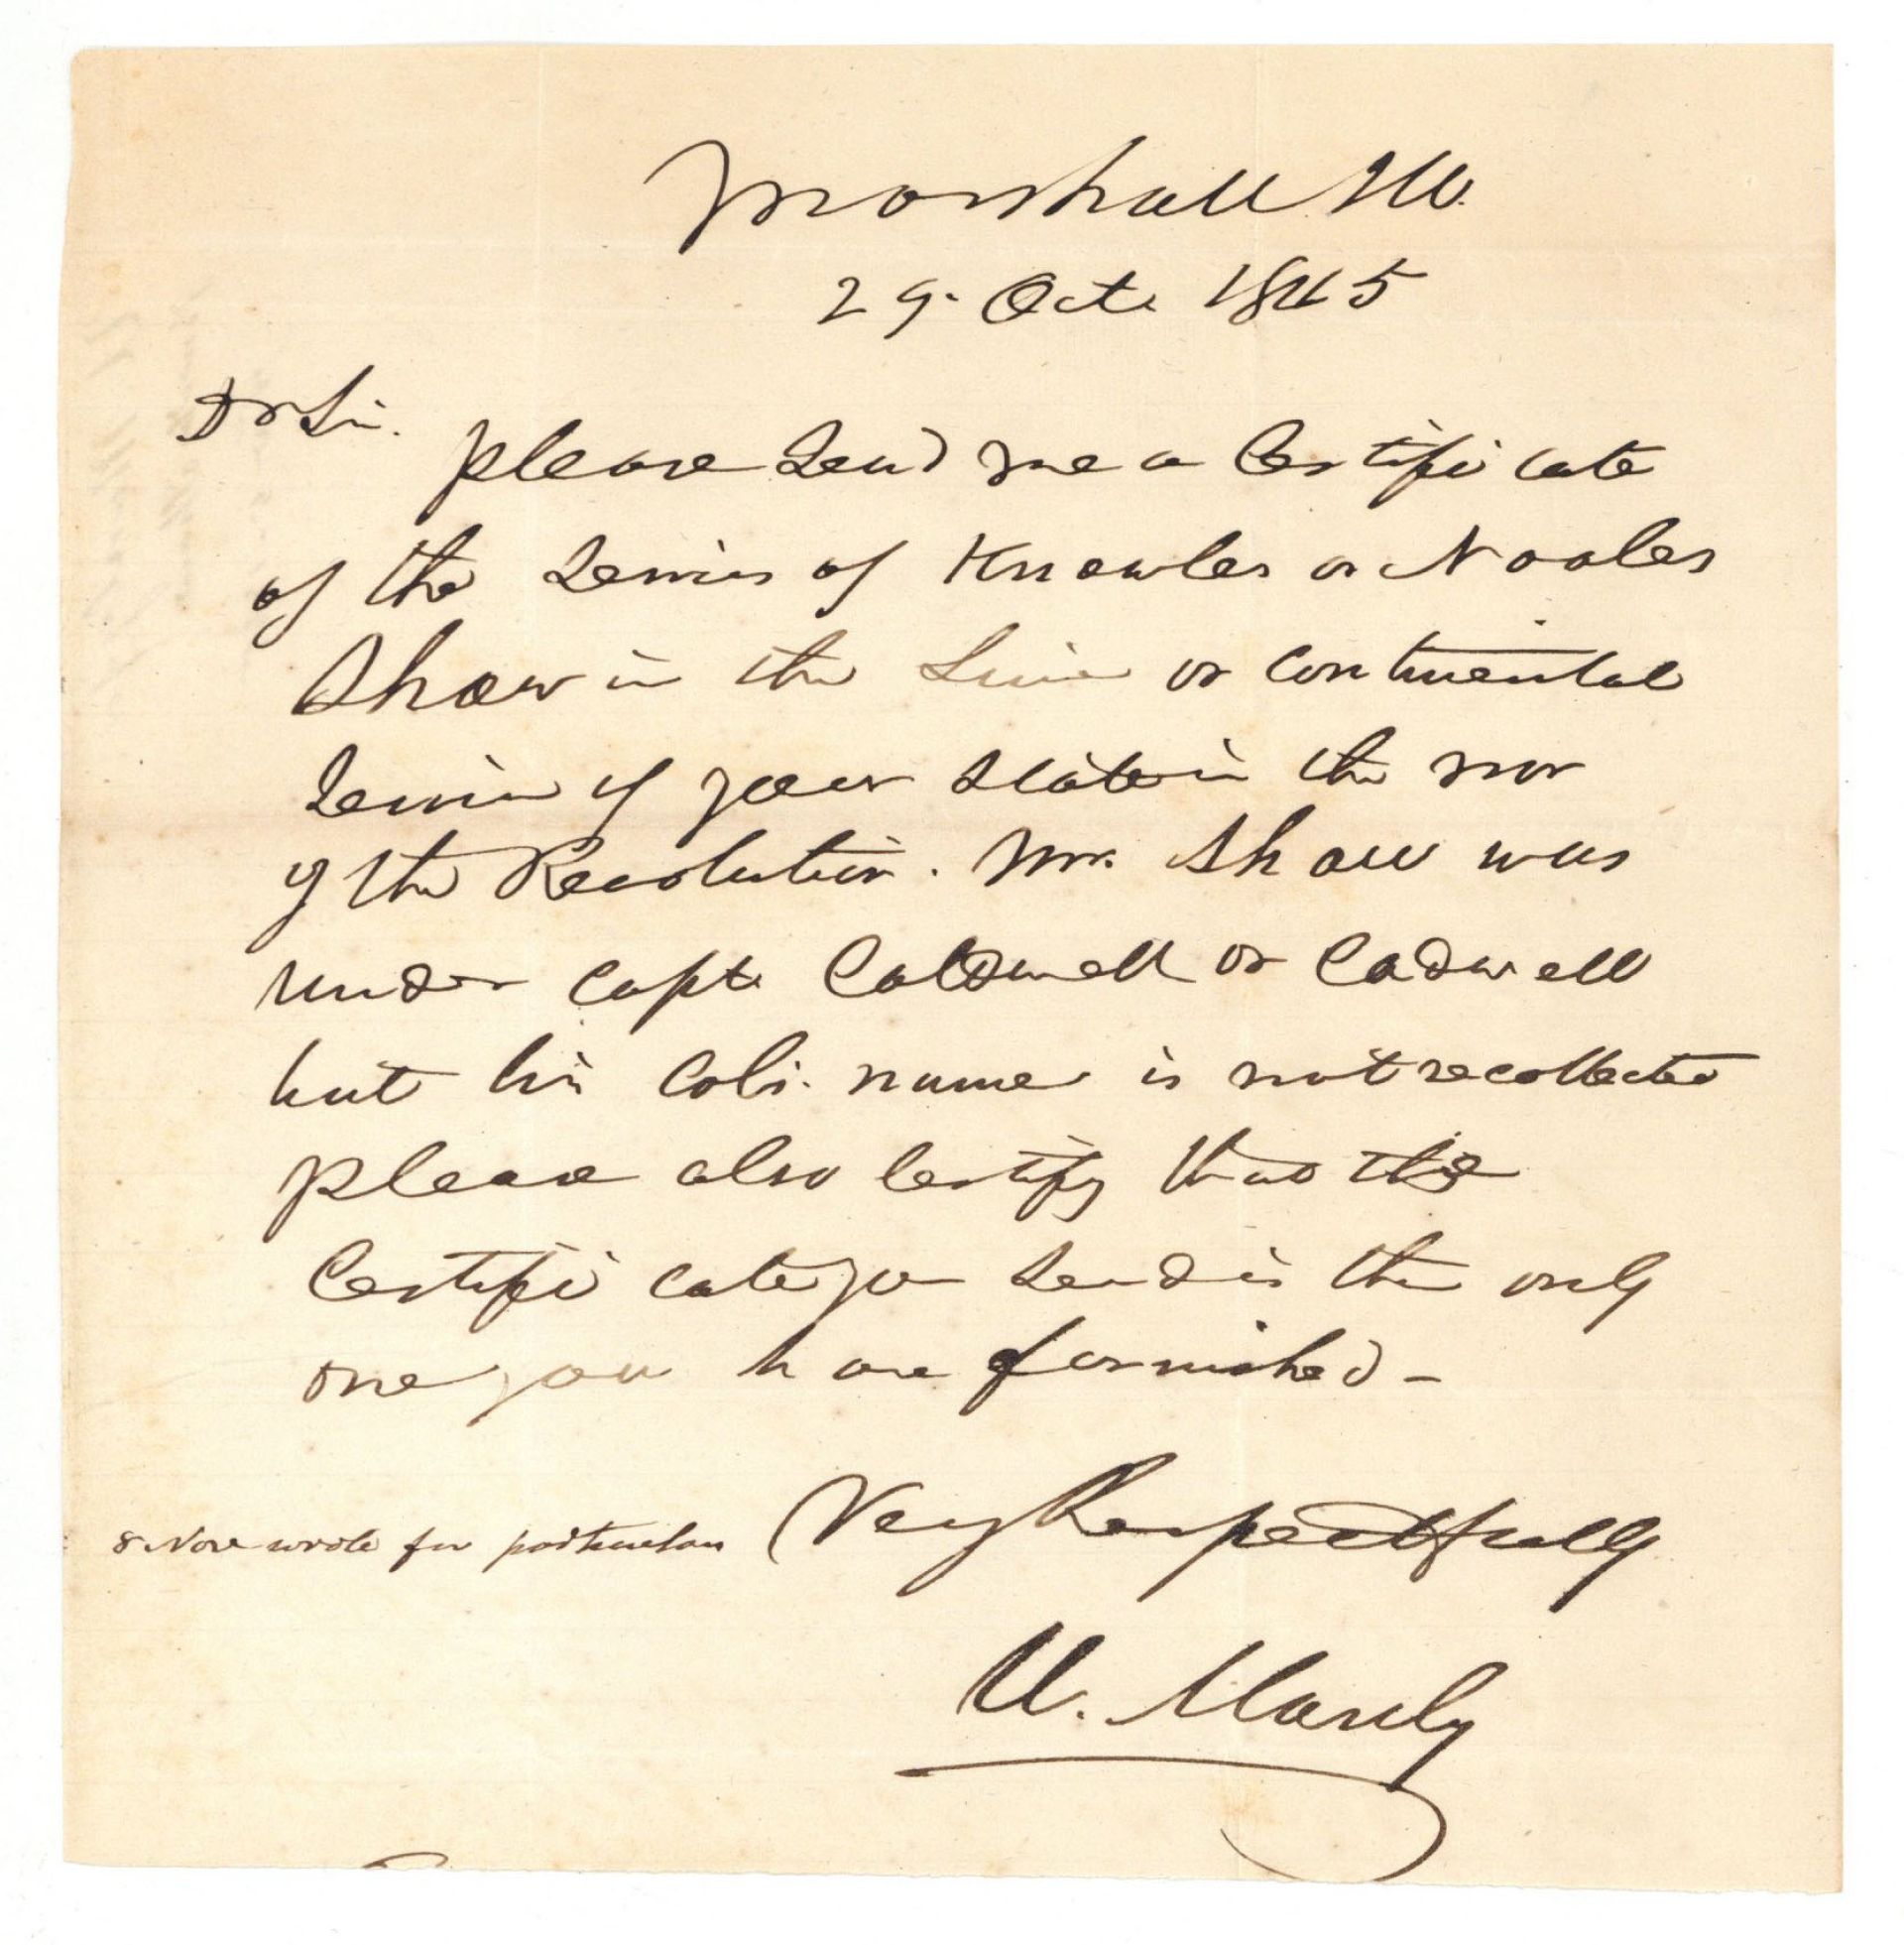 Marshall Ill.
29. Oct. 1845
Dr Sir.
please send me a Certificate
of the Service of Knowles or Nooles
Shaw in the Line or Continental
Service of your State in the war
of the Revolution. Mr. Shaw was
under Capt. Caldwell or Cadwell
but his Cols. name is not recollected
please also certify that the
Certificate you send is the only
one you have furnished -
Very Respectfully
8 Nov wrote for particulars
U. Manly